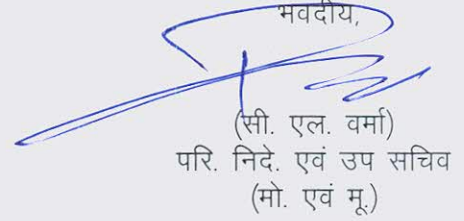 भवदीय,
(सी. एल. वर्मा)
परि. निदे. एवं उप सचिव
(मो. एवं मू.)